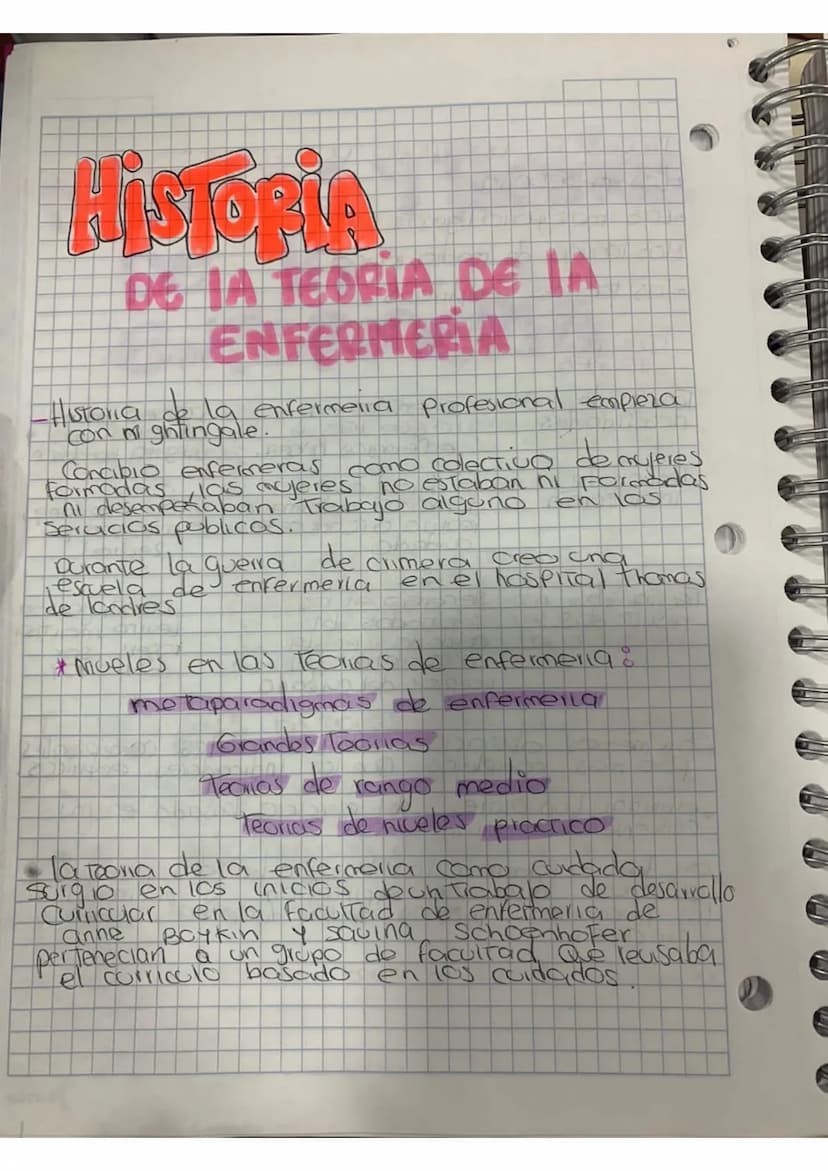 HiSTORiA
DE lA TEORiA DE lA
ENFERMERiA
- Historia de la enfermeria Profesional empieza
con nightingale.
Concibio enfermeras como colectivo de mujeres
formadas, las mujeres no estaban ni Formadas
ni desempeñaban Trabajo alguno en los
Servicios publicos.
Durante la guerra de crimera creo una
escuela de enfermeria en el hospital thomas
de londres
* niveles en las Teorias de enfermeria:
metaparadigmas de enfermeria
Grandes Teorias
Teorias de rango medio
Teorias de niveles practico
• la Teoria de la enfermeria como cuidado
surgio en los inicios de un Trabajo de desarrollo
curricular en la facultad de enfermeria de
anne BOYKin Y Savina Schoenhofer
pertenecian a un grupo de facultad que revisaba
el curriculo basado en los cuidados.